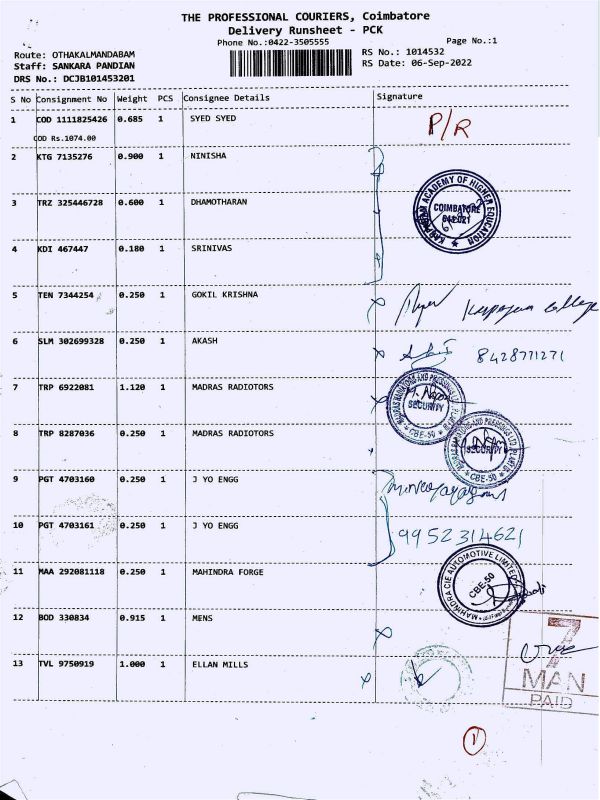 THE PROFESSIONAL COURIERS, Coimbatore
Delivery Runsheet - PCK
Phone No.:0422-3505555
Page No.:1
Route: OTHAKALMANDABAM
RS No.: 1014532
Staff: SANKARA PANDIAN
RS Date: 06-Sep-2022
DRS No.: DCJB101453201
S No Consignment No Weight PCS Consignee Details Signature
1 COD 1111825426 0.685 1 SYED SYED P/R
COD Rs.1074.00
2 KTG 7135276 0.900 1 NINISHA
KARPAGAM ACADEMY OF HIGHER EDUCATION
COIMBATORE
641021
3 TRZ 325446728 0.600 1 DHAMOTHARAN
4 KDI 467447 0.180 1 SRINIVAS
5 TEN 7344254 0.250 1 GOKIL KRISHNA Karpagam College
6 SLM 302699328 0.250 1 AKASH 8428771271
7 TRP 6922081 1.120 1 MADRAS RADIOTORS
SECURITY
CBE-50
8 TRP 8287036 0.250 1 MADRAS RADIOTORS
SECURITY
CBE-50
9 PGT 4703160 0.250 1 J YO ENGG
10 PGT 4703161 0.250 1 J YO ENGG 9952314621
11 MAA 292081118 0.250 1 MAHINDRA FORGE
MAHINDRA CIE AUTOMOTIVE LIMITED
CBE-50
12 BOD 330834 0.915 1 MENS
13 TVL 9750919 1.000 1 ELLAN MILLS
7
MAN
PAID
1